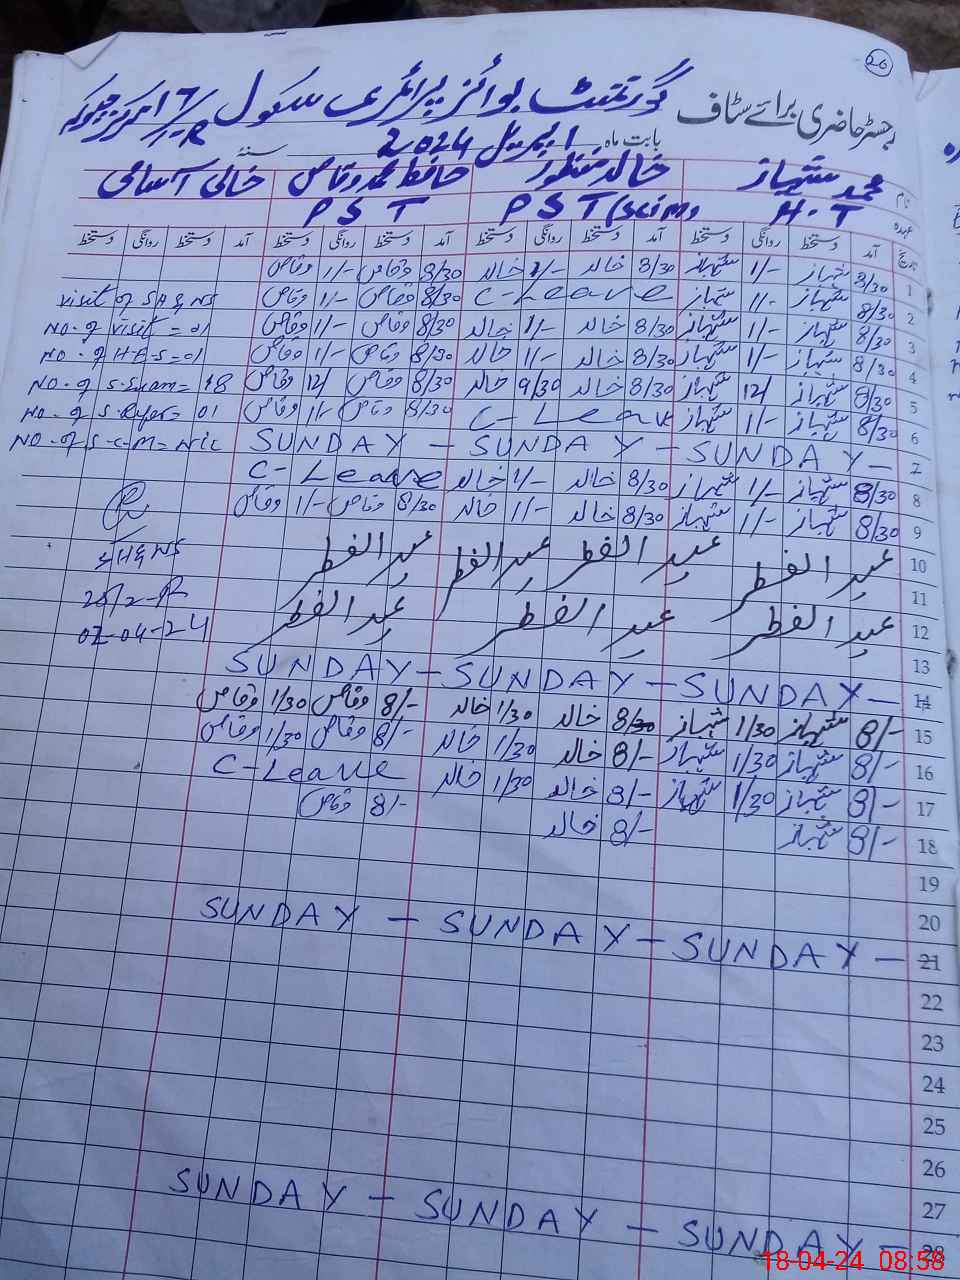 26
رجسٹر حاضری برائے سٹاف گورنمنٹ بوائز پرائمری سکول
بابت ماہ اپریل 2024 سنہ
نام محمد شہباز خالد منظور حافظ محمد وقاص خالی آسامی
عہدہ H.T PST (Sci.M) PST
تاریخ آمد دستخط روانگی دستخط آمد دستخط روانگی دستخط آمد دستخط روانگی دستخط آمد دستخط روانگی دستخط
1 8/30 شہباز 1/- شہباز 8/30 خالد 1/- خالد 8/30 وقاص 1/- وقاص
2 8/30 شہباز 1/- شہباز C-Leave 8/30 وقاص 1/- وقاص visit of SH&NS
3 8/30 شہباز 1/- شہباز 8/30 خالد 1/- خالد 8/30 وقاص 1/- وقاص NO. of visit = 01
4 8/30 شہباز 1/- شہباز 8/30 خالد 1/- خالد 8/30 وقاص 1/- وقاص NO. of H-E-S = 01
5 8/30 شہباز 12/ شہباز 8/30 خالد 9/30 خالد 8/30 وقاص 12/ وقاص NO. of S. Exam = 18
6 8/30 شہباز 1/- شہباز C-Leave 8/30 وقاص 1/- وقاص NO. of S. Refer = 01
7 SUNDAY - SUNDAY - SUNDAY - NO. of S-C-M = NIL
8 8/30 شہباز 1/- شہباز 8/30 خالد 1/- خالد C-Leave
9 8/30 شہباز 1/- شہباز 8/30 خالد 1/- خالد 8/30 وقاص 1/- وقاص
10 عید الفطر عید الفطر عید الفطر عید الفطر SH&NS
11
12 عید الفطر عید الفطر عید الفطر 02-04-24
13
14 SUNDAY - SUNDAY - SUNDAY -
15 8/- شہباز 1/30 شہباز 8/30 خالد 1/30 خالد 8/- وقاص 1/30 وقاص
16 8/- شہباز 1/30 شہباز 8/- خالد 1/30 خالد 8/- وقاص 1/30 وقاص
17 8/- شہباز 1/30 شہباز 8/- خالد 1/30 خالد C-Leave
18 8/- شہباز 8/- خالد 8/- وقاص
19
20
21 SUNDAY - SUNDAY - SUNDAY -
22
23
24
25
26
27
28 SUNDAY - SUNDAY - SUNDAY -
18-04-24 08:58